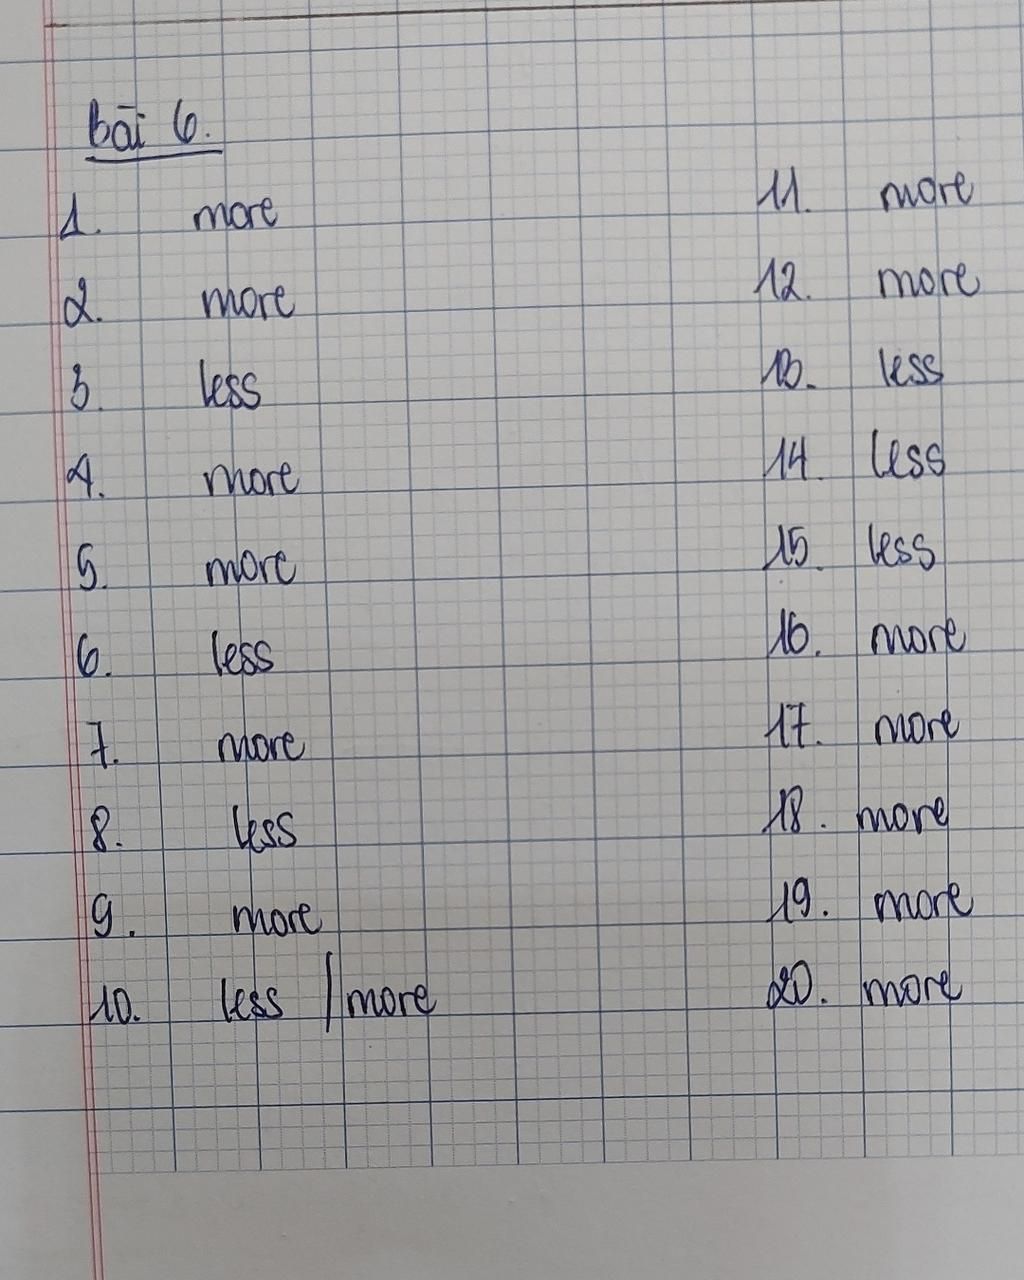 bài 6.
1. more
2. more
3. less
4. more
5. more
6. less
7. more
8. less
9. more
10. less / more
11. more
12. more
13. less
14. less
15. less
16. more
17. more
18. more
19. more
20. more